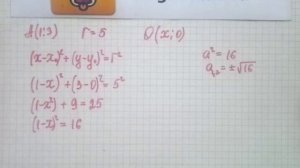 A(1;3) r=5 O(x;0)
(x-x₀)²+(y-y₀)²=r²
(1-x)²+(3-0)²=5²
(1-x²)+9=25
(1-x)²=16
a²=16
a₁,₂=±√16